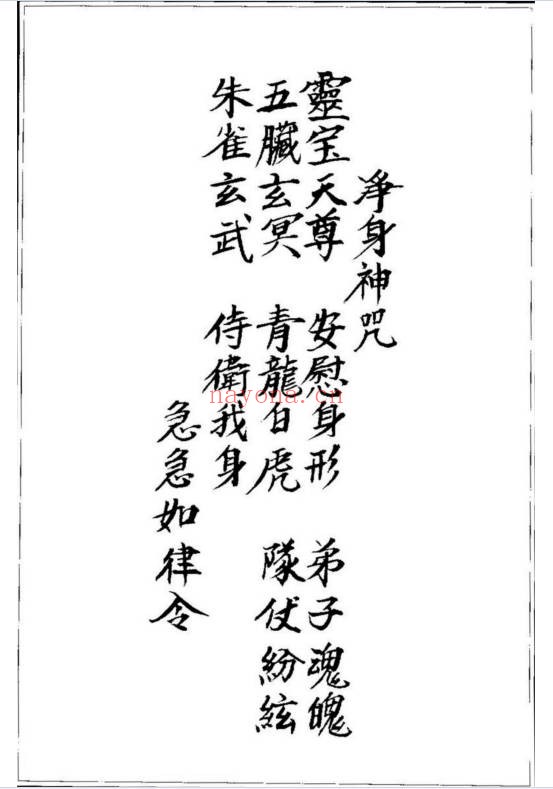 淨身神咒
靈宝天尊 安慰身形 弟子魂魄
五臟玄冥 青龍白虎 隊仗紛紜
朱雀玄武 侍衛我身
急急如律令
nayona.cn